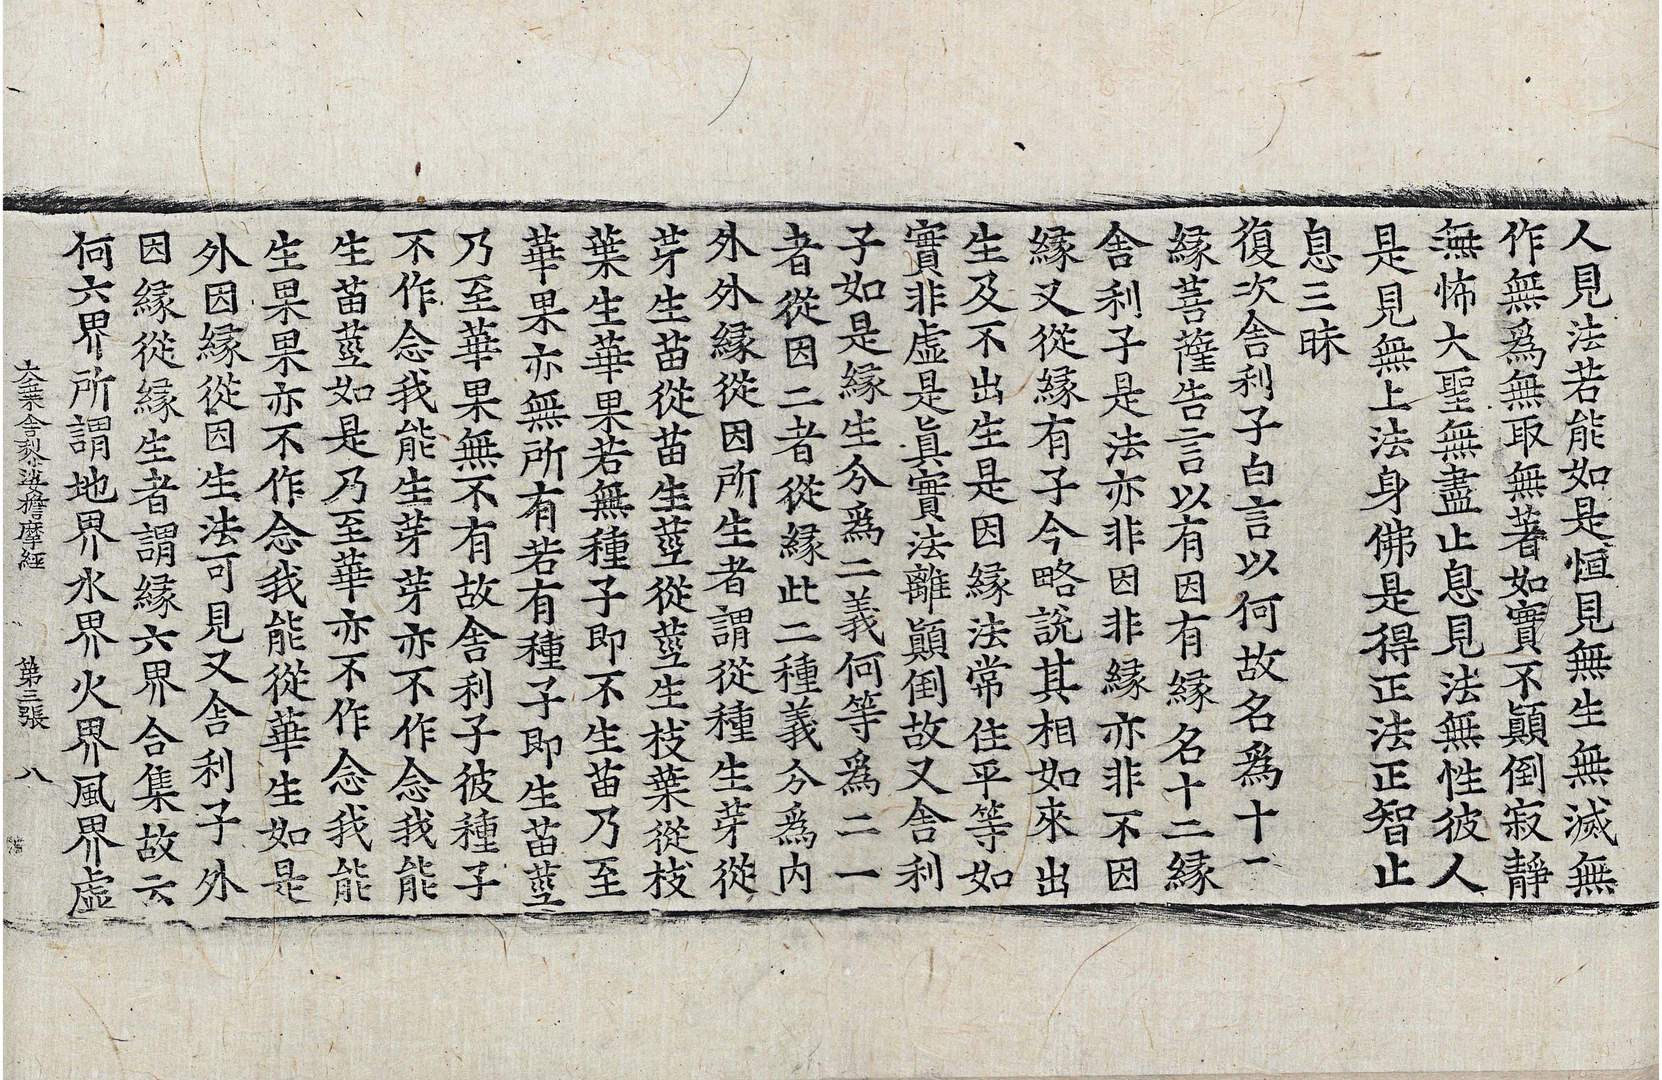 人見法若能如是恒見無生無滅無
作無爲無取無著如實不顚倒寂靜
無怖大聖無盡止息見法無性彼人
是見無上法身佛是得正法正智止
息三昧
復次舍利子白言以何故名爲十二
緣菩薩告言以有因有緣名十二緣
舍利子是法亦非因非緣亦非不因
緣又從緣有子今略說其相如來出
生及不出生是因緣法常住平等如
實非虛是眞實法離顚倒故又舍利
子如是緣生分爲二義何等爲二一
者從因二者從緣此二種義分爲内
外外緣從因所生者謂從種生芽從
芽生苗從苗生莖從莖生枝葉從枝
葉生華果若無種子即不生苗乃至
華果亦無所有若有種子即生苗莖
乃至華果無不有故舍利子彼種子
不作念我能生芽芽亦不作念我能
生苗莖如是乃至華亦不作念我能
生果果亦不作念我能從華生如是
外因緣從因生法可見又舍利子外
因緣從緣生者謂緣六界合集故云
何六界所謂地界水界火界風界虛
大乘舍黎娑擔摩經 第三張 八